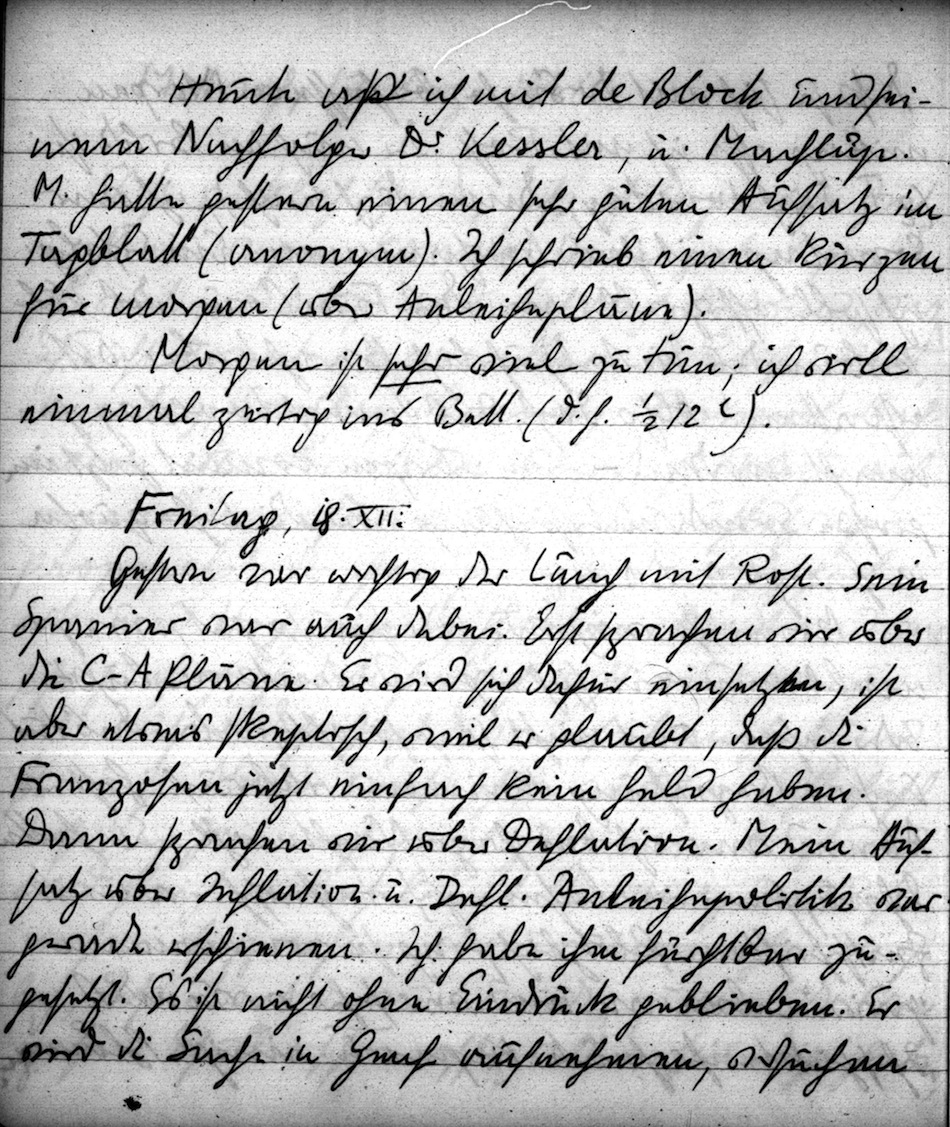 Heute aß ich mit de Block und sei-
nem Nachfolger Dr. Kessler, u. Machlup.
M. hatte gestern einen sehr guten Aufsatz im
Tagblatt (anonym). Ich schrieb einen kurzen
für morgen (über Anleihepläne).
Morgen ist sehr viel zu tun; ich will
einmal zeitig ins Bett. (d.h. ½ 12 h).
Freitag, 18. XII.:
Gestern war wichtig der Lunch mit Rost. Sein
Spanier war auch dabei. Erst sprachen wir über
die C-A Pläne. Er wird sich dafür einsetzen, ist
aber etwas skeptisch, weil er glaubt, daß die
Franzosen jetzt einfach kein Geld haben.
Dann sprachen wir über Deflation. Mein Auf-
satz über Inflation u. Defl. Anleihepolitik war
gerade erschienen. Ich habe ihm furchtbar zu-
gesetzt. Es ist nicht ohne Eindruck geblieben. Er
wird die Sache in Genf aufnehmen, versuchen